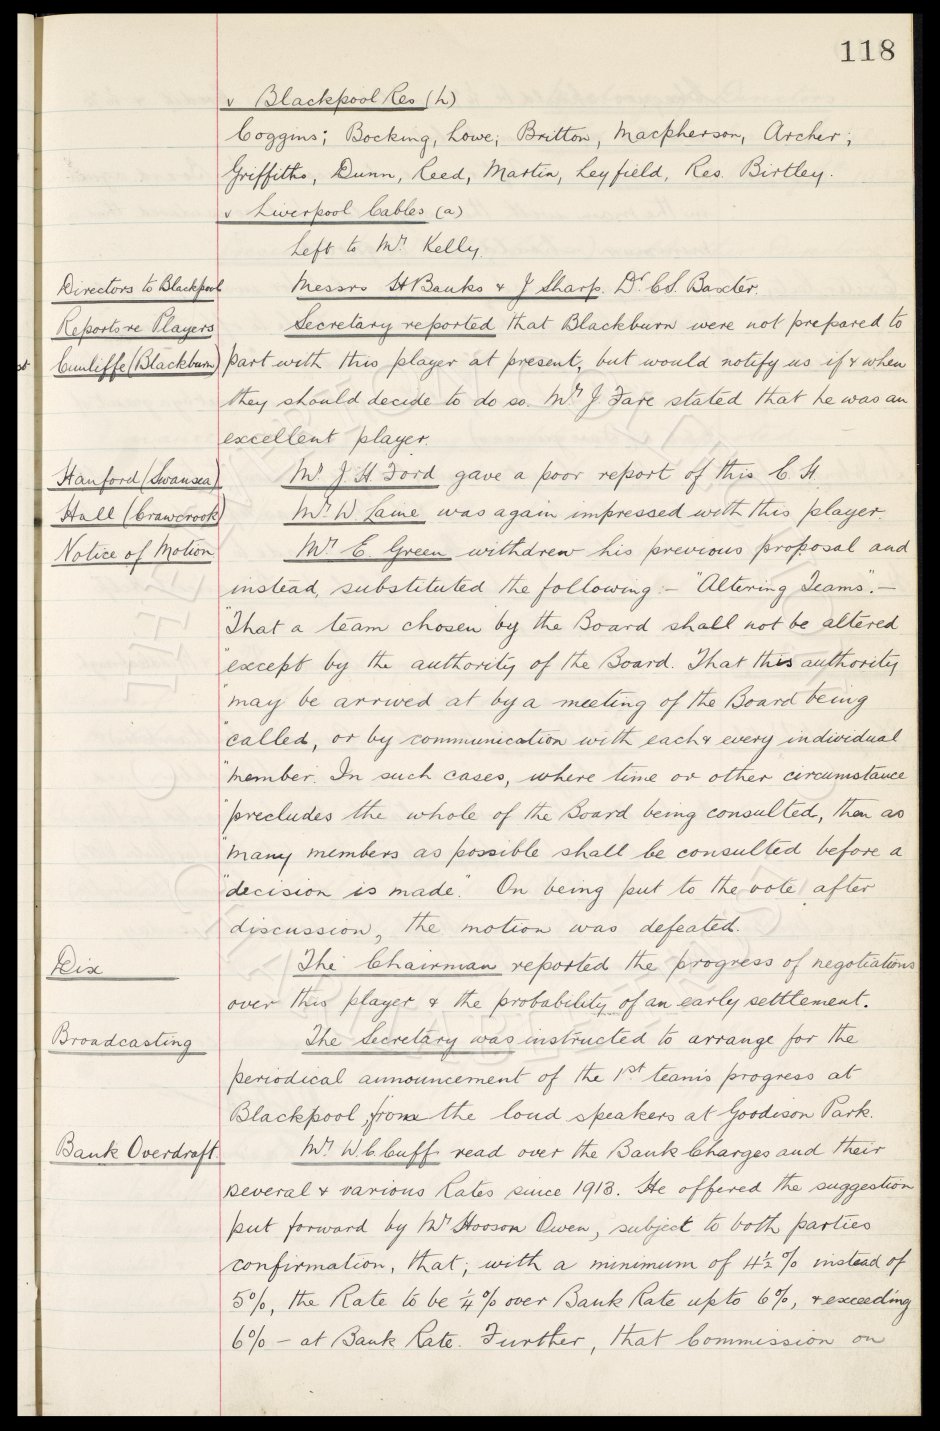 118
v Blackpool Res (h)
Coggins; Bocking, Lowe; Britton, Macpherson, Archer;
Griffiths, Dunn, Reed, Martin, Leyfield, Res. Birtley.
v Liverpool Cables (a)
Left to Mr. Kelly.
Directors to Blackpool Messrs H Banks & J Sharp. Dr. C.S. Baxter.
Reports re Players Secretary reported that Blackburn were not prepared to
Cunliffe (Blackburn) part with this player at present, but would notify us if & when
they should decide to do so. Mr. J Fare stated that he was an
excellent player.
Hanford (Swansea) Mr J. H. Ford gave a poor report of this C. H.
Hall (Crawcrook) Mr. W. Laine was again impressed with this player.
Notice of Motion Mr. E. Green withdrew his previous proposal and
instead, substituted the following:- "Altering Teams".-
"That a team chosen by the Board shall not be altered
"except by the authority of the Board. That this authority
"may be arrived at by a meeting of the Board being
"called, or by communication with each & every individual
"member. In such cases, where time or other circumstance
"precludes the whole of the Board being consulted, then as
"many members as possible shall be consulted before a
"decision is made." On being put to the vote, after
discussion, the motion was defeated.
Dix The Chairman reported the progress of negotiations
over this player & the probability of an early settlement.
Broadcasting The Secretary was instructed to arrange for the
periodical announcement of the 1st team's progress at
Blackpool, from the loud speakers at Goodison Park.
Bank Overdraft. Mr. W.C. Cuff read over the Bank Charges and their
several & various Rates since 1913. He offered the suggestion
put forward by Mr Hooson Owen, subject to both parties
confirmation, that, with a minimum of 4½% instead of
5%, the Rate to be ¼% over Bank Rate up to 6%, & exceeding
6% - at Bank Rate. Further, that Commission on